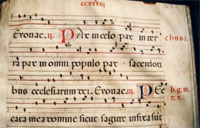 ccxxviij
Evovae. ij. Per incelo par in ter
ra par in omni populo par sacerdoti
bus ecclesiarum dei. Evovae. Pe
cata mea domine sicut sagitte infixa sut